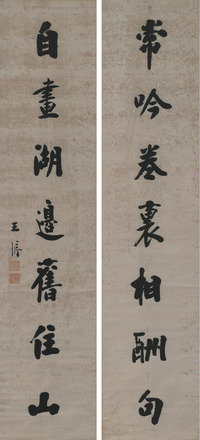 常吟卷裏相酬句
自畫湖邊舊住山
王